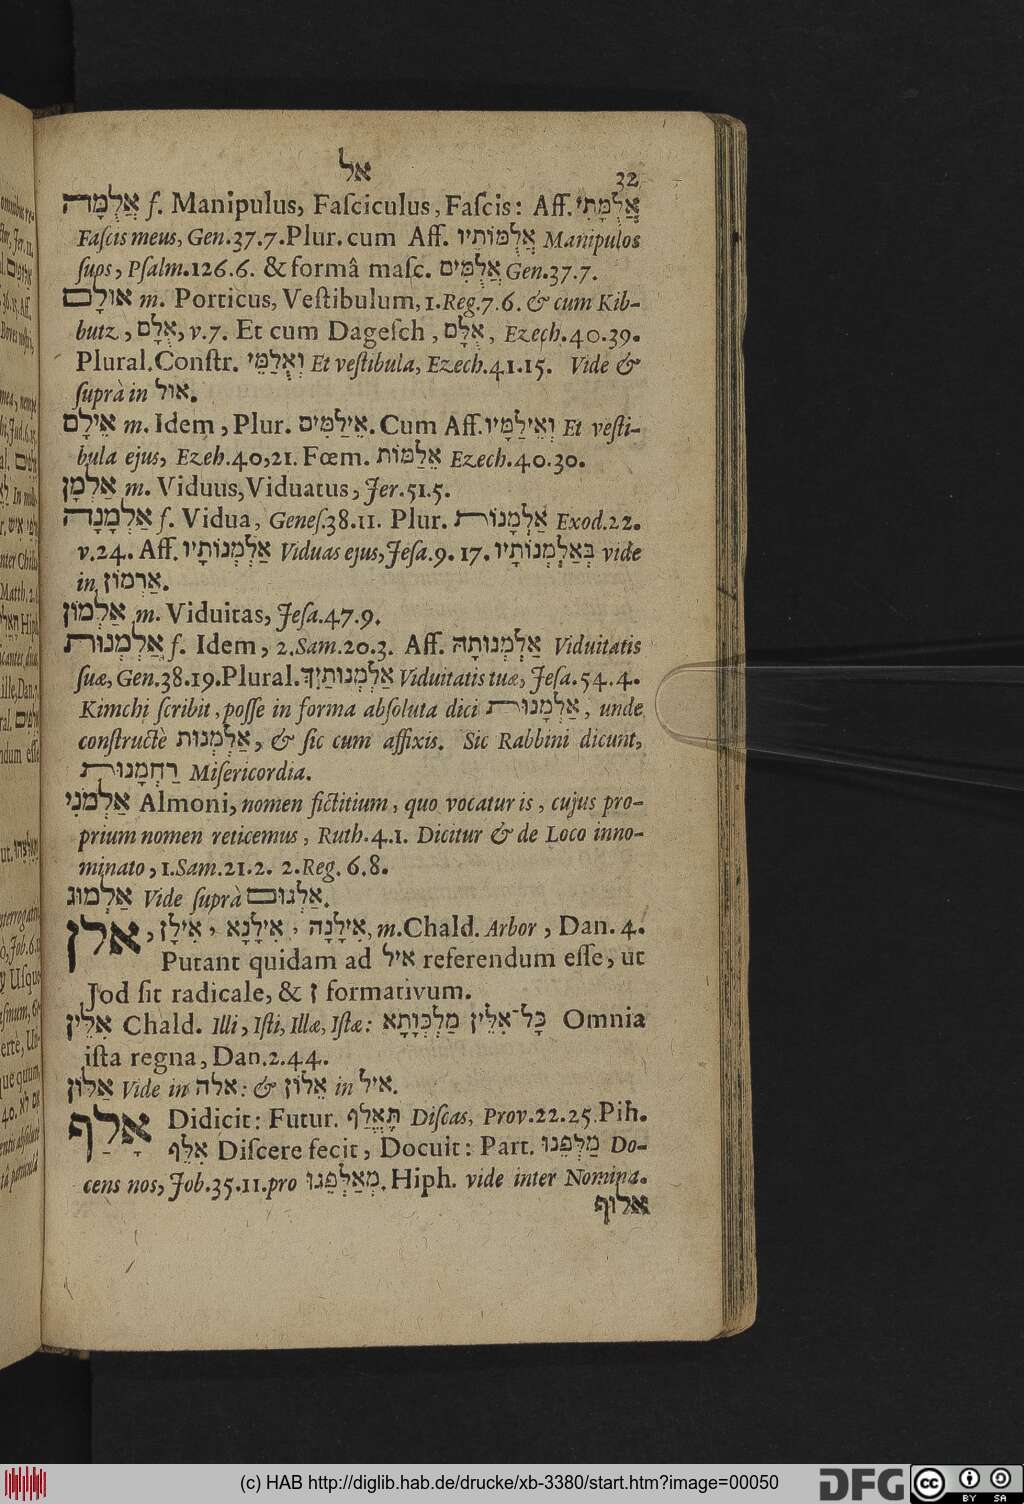 אל
32
אֲלֻמָּה f. Manipulus, Faſciculus, Faſcis: Aff. אֲלֻמָּתִי
Faſcis meus, Gen. 37.7. Plur. cum Aff. אֲלֻמּוֹתָיו Manipulos
ſuos, Pſalm. 126.6. & formâ maſc. אֲלֻמִּים Gen. 37.7.
אוּלָם m. Porticus, Veſtibulum, 1. Reg. 7.6. & cum Kib-
butz, אֻלָם, v. 7. Et cum Dageſch, אֻלָּם, Ezech. 40.39.
Plural. Conſtr. וְאֻלַמֵּי Et veſtibula, Ezech. 41.15. Vide &
ſuprà in אול.
אֵילָם m. Idem, Plur. אֵילַמִּים. Cum Aff. וְאֵילַמָּיו Et veſti-
bula ejus, Ezeh. 40,21. Fœm. אֵלַמּוֹת Ezech. 40.30.
אַלְמָן m. Viduus, Viduatus, Jer. 51.5.
אַלְמָנָה f. Vidua, Geneſ. 38.11. Plur. אַלְמָנוֹת Exod. 22.
v. 24. Aff. אַלְמְנוֹתָיו Viduas ejus, Jeſa. 9.17. בְּאַלְמְנוֹתָיו vide
in אַרְמוֹן.
אַלְמוֹן m. Viduitas, Jeſa. 47.9.
אַלְמְנוּת f. Idem, 2. Sam. 20.3. Aff. אַלְמְנוּתָהּ Viduitatis
ſuæ, Gen. 38.19. Plural. אַלְמְנוּתַיִךְ Viduitatis tuæ, Jeſa. 54.4.
Kimchi ſcribit, poſſe in forma abſoluta dici אַלְמָנוּת, unde
conſtructè אַלְמְנוּת, & ſic cum affixis. Sic Rabbini dicunt,
רַחְמָנוּת Miſericordia.
אַלְמֹנִי Almoni, nomen fictitium, quo vocatur is, cujus pro-
prium nomen reticemus, Ruth. 4.1. Dicitur & de Loco inno-
minato, 1. Sam. 21.2. 2. Reg. 6.8.
אַלְמוּג Vide ſuprà אַלְגּוּם.
אלן, אִילָן, אִילָנָא, אִילָנָה, m. Chald. Arbor, Dan. 4.
Putant quidam ad איל referendum eſſe, ut
Jod ſit radicale, & ן formativum.
אִלֵּין Chald. Illi, Iſti, Illæ, Iſtæ: כָּל־אִלֵּין מַלְכְוָתָא Omnia
iſta regna, Dan. 2.44.
אַלּוֹן Vide in אלה: & אֵלוֹן in איל.
אָלַף Didicit: Futur. תֶּאֱלַף Diſcas, Prov. 22.25. Pih.
אִלֵּף Diſcere fecit, Docuit: Part. מַלְּפֵנוּ Do-
cens nos, Job. 35.11. pro מְאַלְּפֵנוּ. Hiph. vide inter Nomina.
אַלּוּף
(c) HAB http://diglib.hab.de/drucke/xb-3380/start.htm?image=00050
DFG
cc BY SA